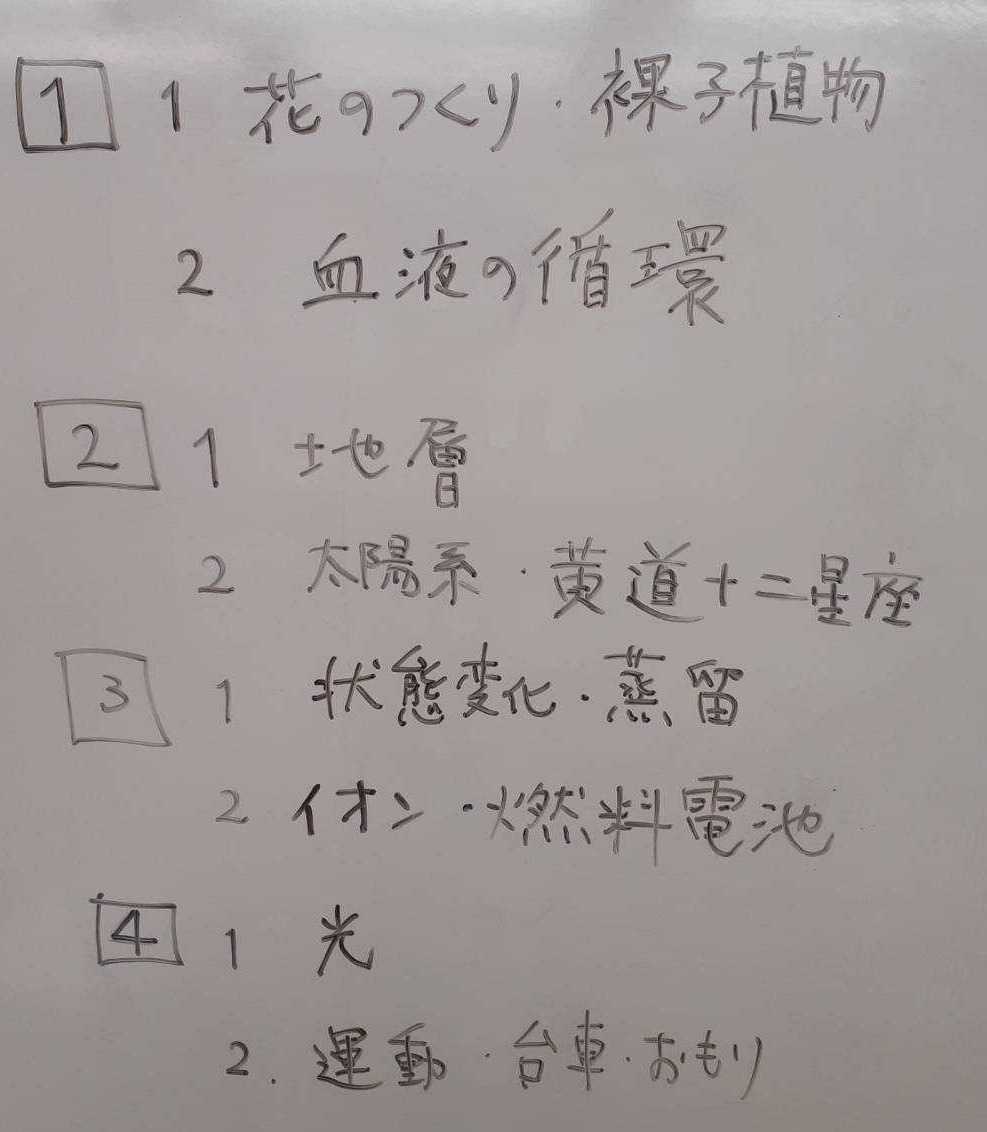 1 1 花のつくり・裸子植物
2 血液の循環
2 1 地層
2 太陽系・黄道十二星座
3 1 状態変化・蒸留
2 イオン・燃料電池
4 1 光
2. 運動・台車・おもり